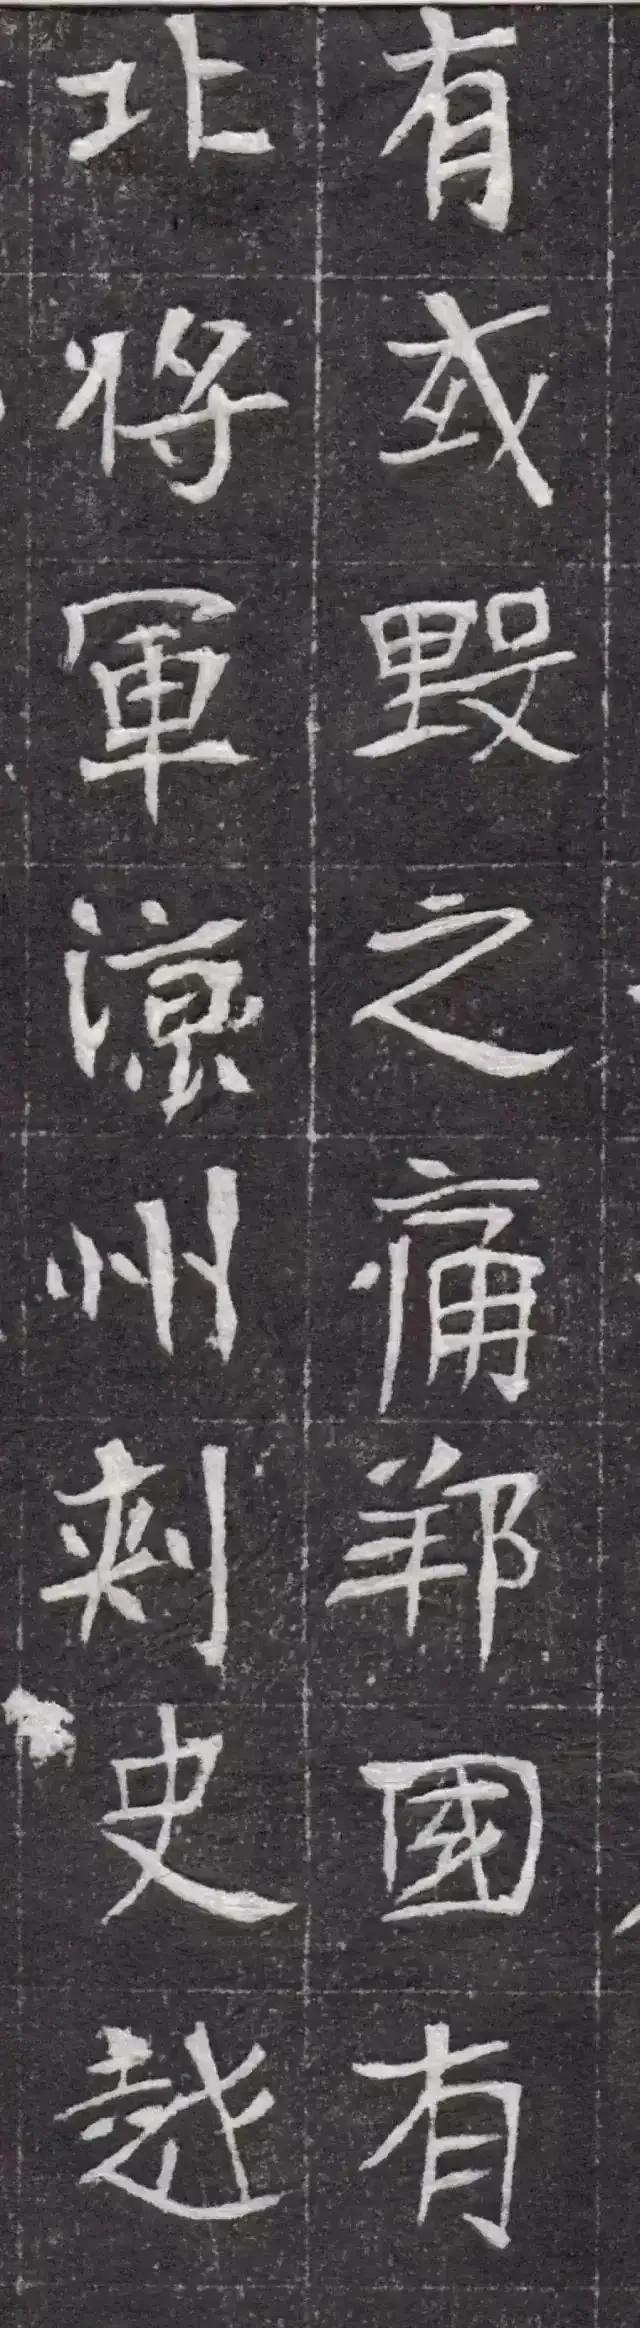 有或毀之痛邦國有
北將軍涼州刺史越